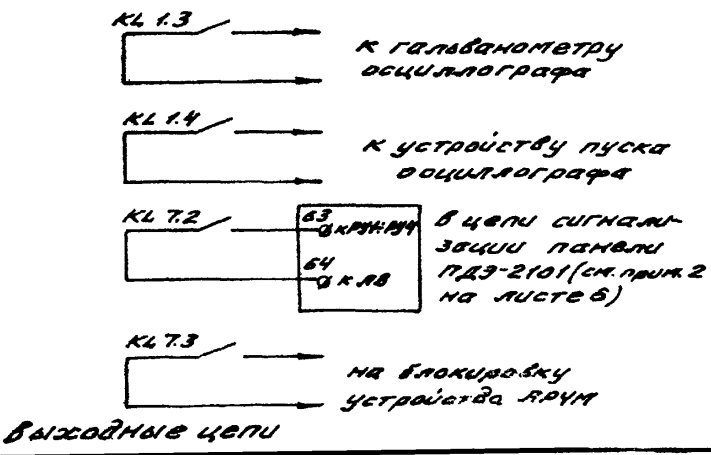 KL 1.3
к гальванометру
осциллографа
KL 1.4
к устройству пуска
осциллографа
KL 7.2
63
64
к ЛВ
в цепи сигнали-
зации панели
ПДЭ-2101 (см. прим. 2
на листе 6)
KL 7.3
на блокировку
устройства АРЧМ
Выходные цепи